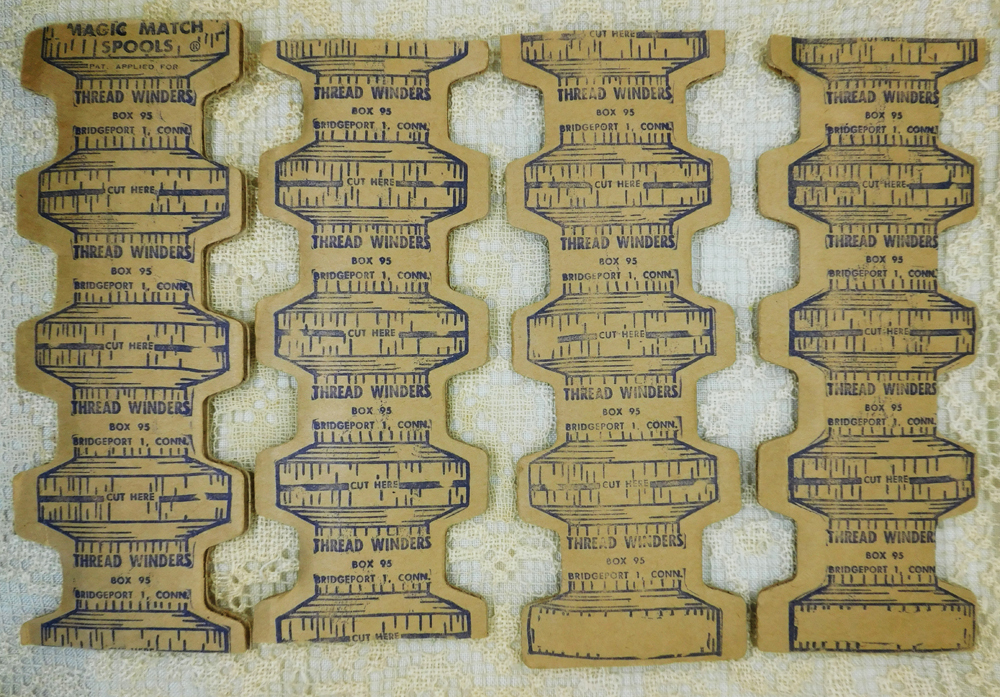 MAGIC MATCH
SPOOLS ®
PAT. APPLIED FOR
THREAD WINDERS
BOX 95
BRIDGEPORT 1, CONN.
CUT HERE
THREAD WINDERS
BOX 95
BRIDGEPORT 1, CONN.
CUT HERE
THREAD WINDERS
BOX 95
BRIDGEPORT 1, CONN.
CUT HERE
THREAD WINDERS
BOX 95
BRIDGEPORT 1, CONN.
THREAD WINDERS
BOX 95
BRIDGEPORT 1, CONN.
CUT HERE
THREAD WINDERS
BOX 95
BRIDGEPORT 1, CONN.
CUT HERE
THREAD WINDERS
BOX 95
BRIDGEPORT 1, CONN.
CUT HERE
THREAD WINDERS
BOX 95
BRIDGEPORT 1, CONN.
CUT HERE
CUT HERE
THREAD WINDERS
BOX 95
BRIDGEPORT 1, CONN.
CUT HERE
THREAD WINDERS
BOX 95
BRIDGEPORT 1, CONN.
CUT HERE
THREAD WINDERS
BOX 95
BRIDGEPORT 1, CONN.
CUT HERE
THREAD WINDERS
BOX 95
BRIDGEPORT 1, CONN.
CUT HERE
THREAD WINDERS
BOX 95
BRIDGEPORT 1, CONN.
CUT HERE
THREAD WINDERS
BOX 95
BRIDGEPORT 1, CONN.
CUT HERE
THREAD WINDERS
BOX 95
BRIDGEPORT 1, CONN.
CUT HERE
THREAD WINDERS
BOX 95
BRIDGEPORT 1, CONN.